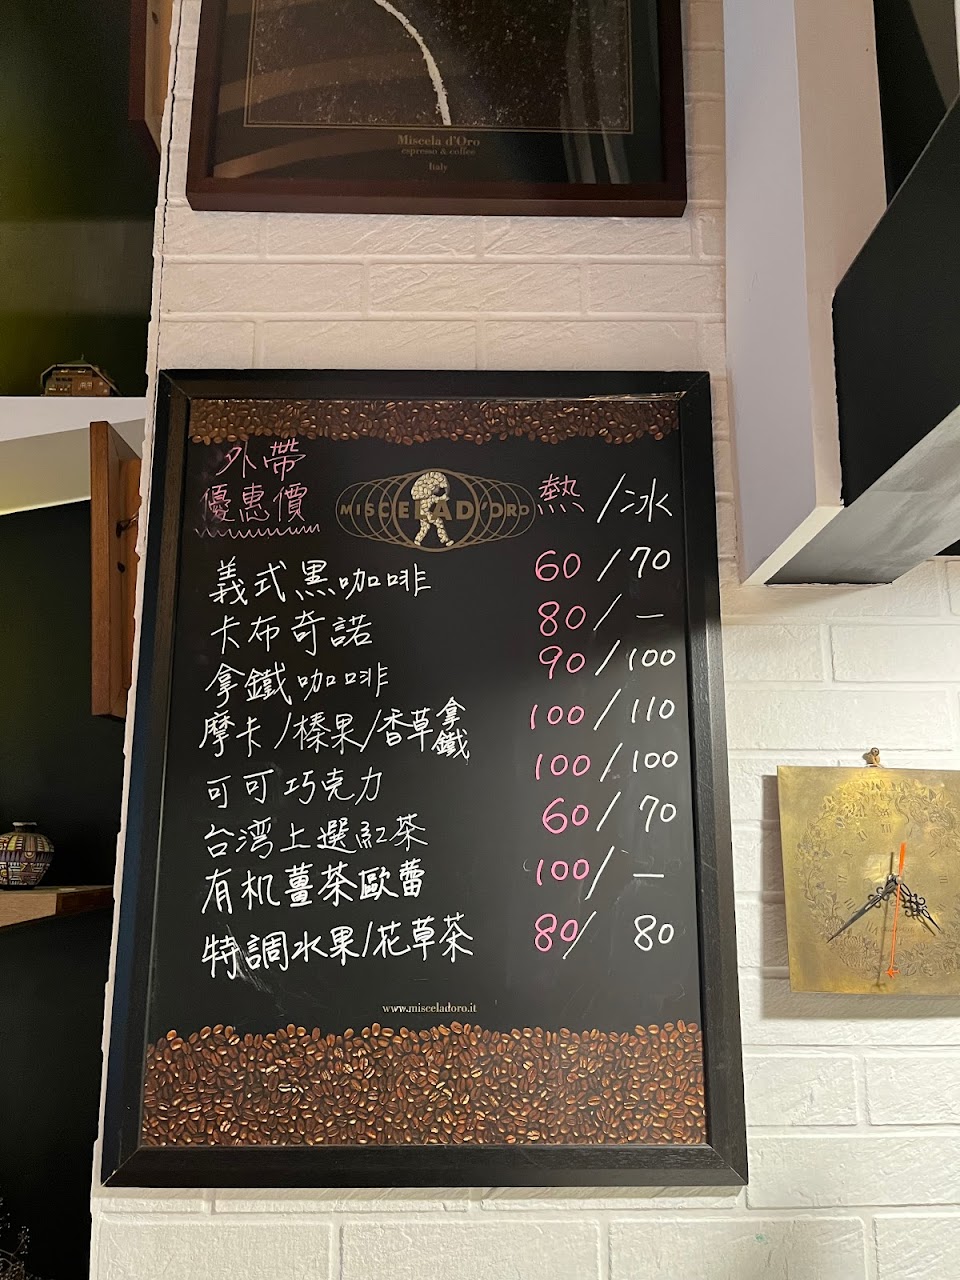 Miscela d'Oro
espresso & coffee
Italy
外帶
優惠價
MISCELA D'ORO
熱/冰
義式黑咖啡 60/70
卡布奇諾 80/—
拿鐵咖啡 90/100
摩卡/榛果/香草拿鐵 100/110
可可巧克力 100/100
台湾上選紅茶 60/70
有机薑茶歐蕾 100/—
特調水果/花草茶 80/80
www.misceladoro.it